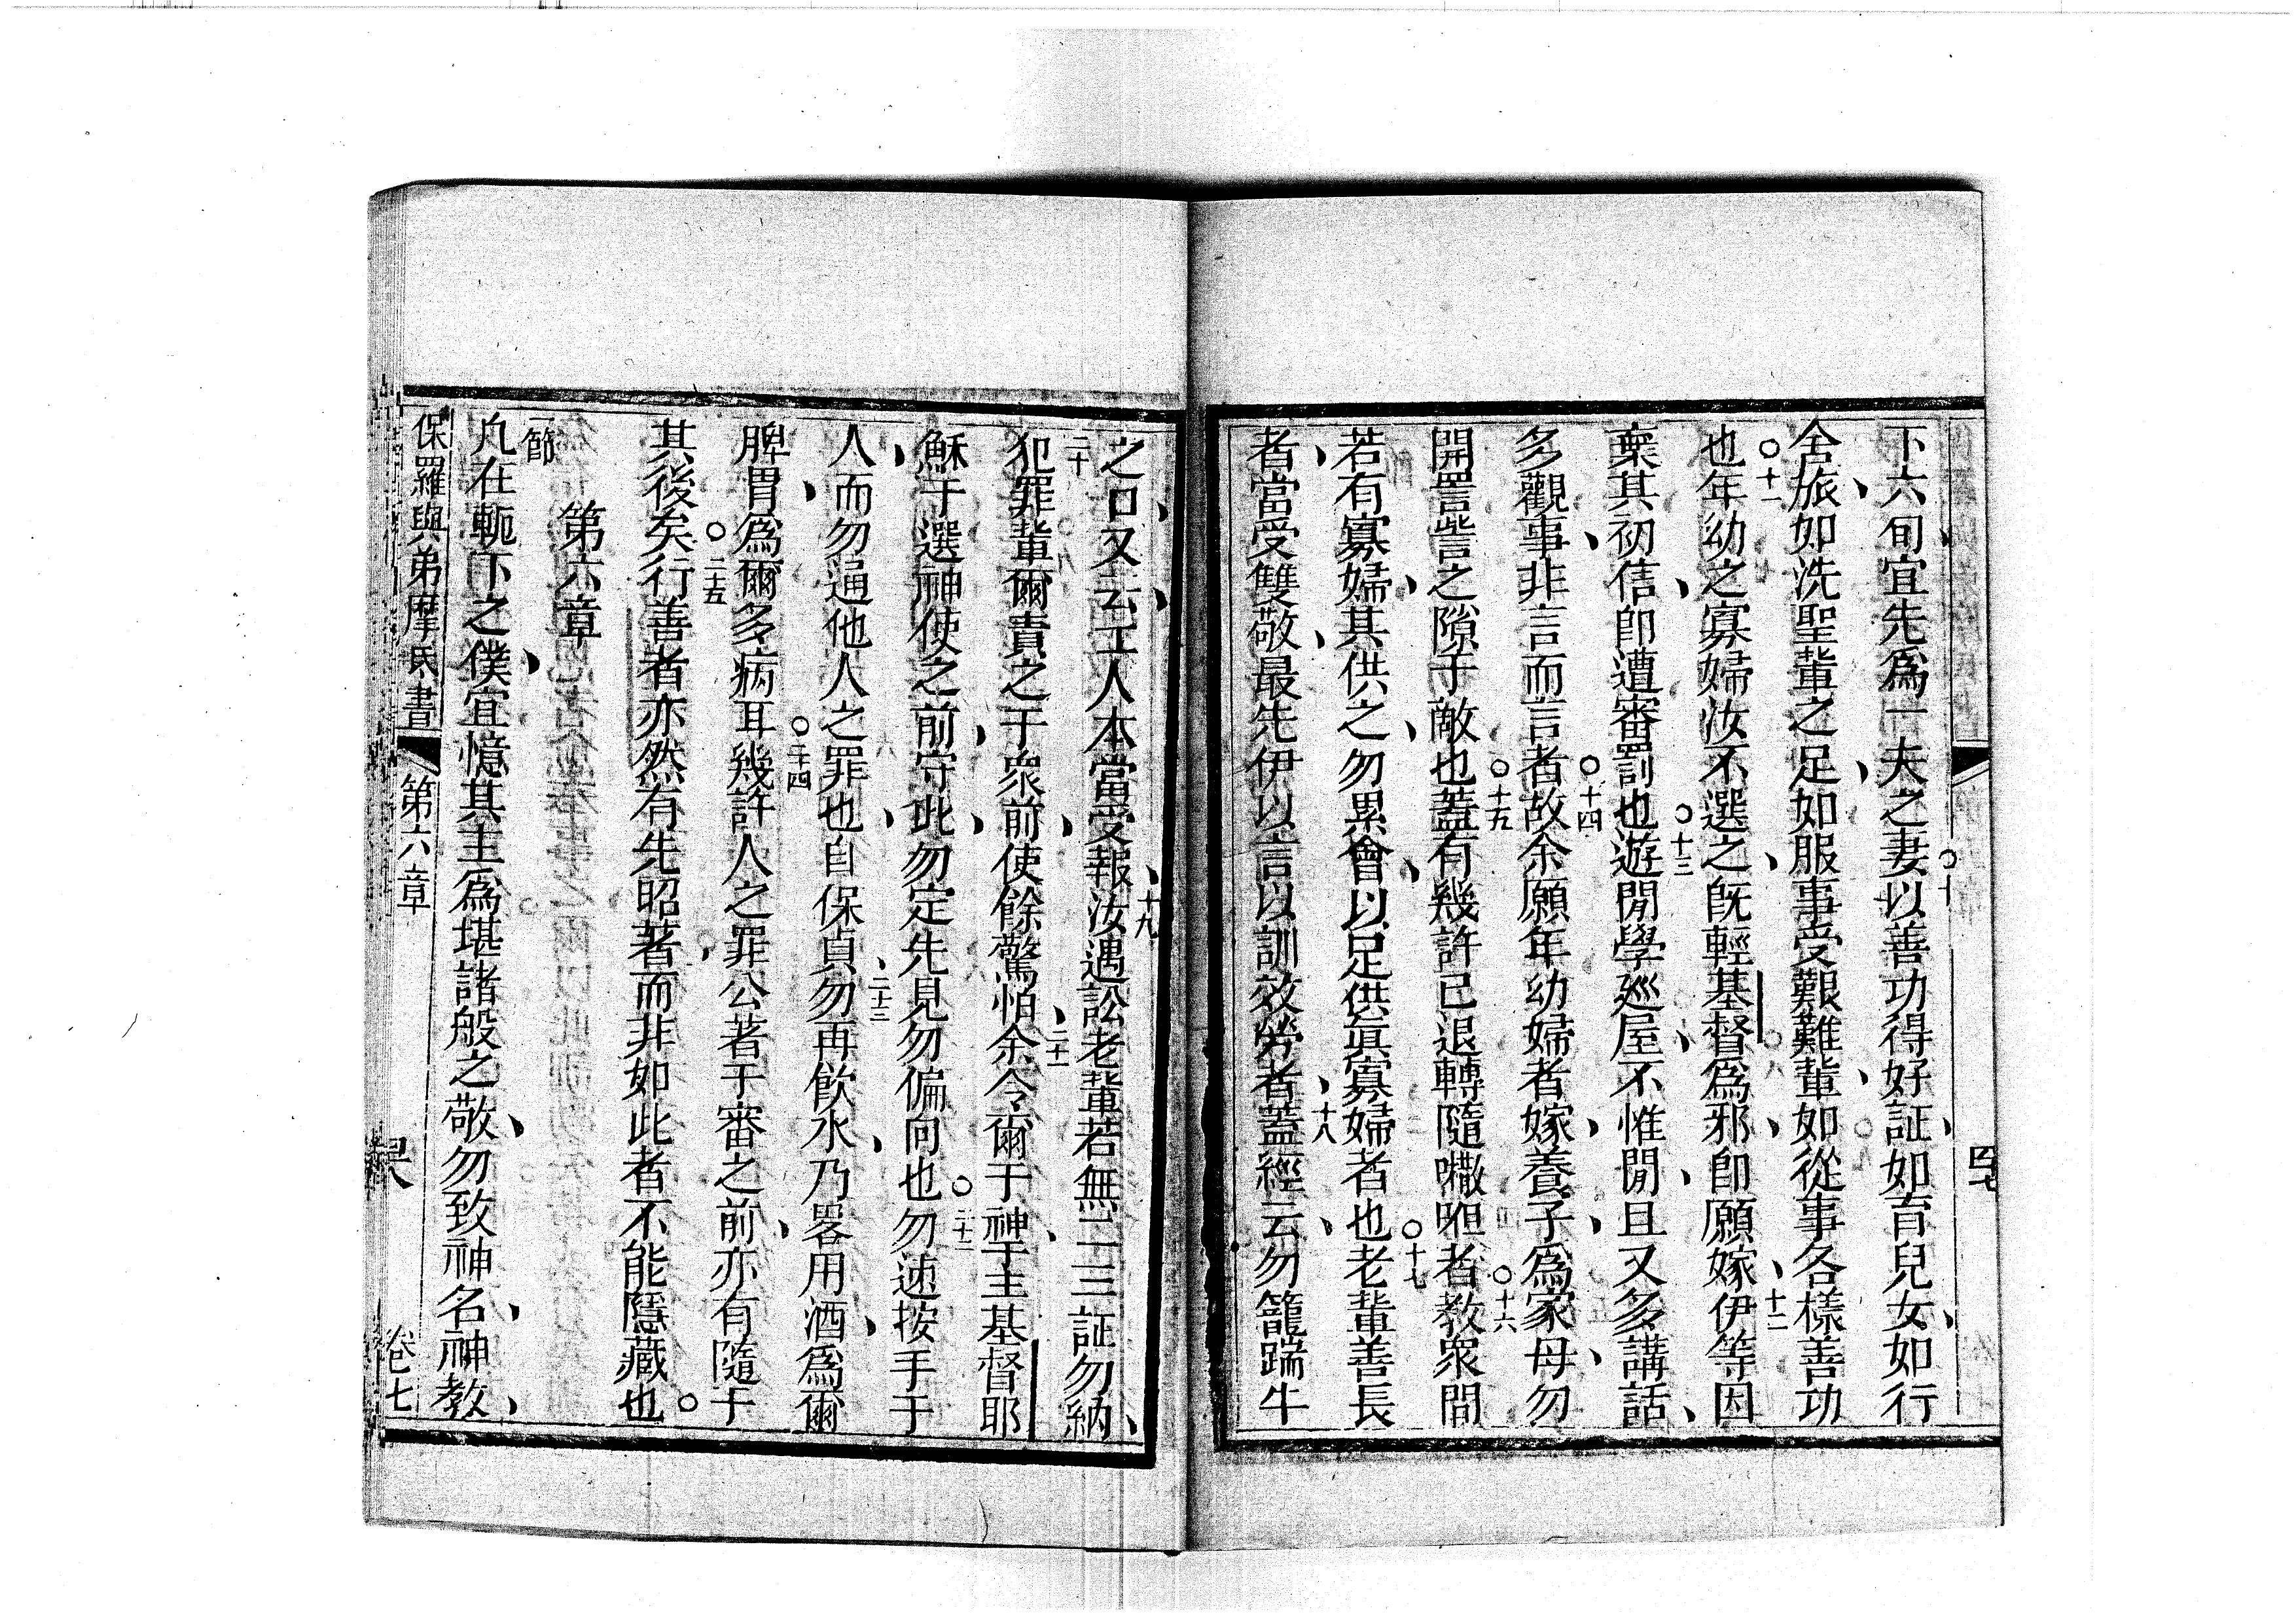 下六旬宜先爲一夫之妻○十以善功得好証、如育兒女、如行
舍旅、如洗聖輩之足、如服事受艱難輩、如從事各樣善功
也○十一年幼之寡婦汝不選之、旣輕基督爲邪、卽願嫁、十二伊等因
棄其初信、卽遭審罰也○十三遊閒學廵屋、不惟閒、且又多講話、
多觀事、非言而言者○十四故余願年幼婦者嫁、養子、爲家母、勿
開詈訾之隙于敵也○十五蓋有幾許已退轉隨㘔呾者○十六教衆間
若有寡婦、其供之、勿累會、以足供眞寡婦者也○十七老輩善長
者、當受雙敬、最先伊以言以訓效勞者、十八蓋經云、勿籠踹牛
之口、又云、工人本當受報、十九汝遇訟老輩若無二三証勿納、
二十犯罪輩爾責之于衆前、使餘驚怕、二十一余令爾于神、于主基督耶
穌、于選神使之前、守此、勿定先見勿偏向也○二十二勿速按手于
人、而勿通他人之罪也、自保貞、二十三勿再飲水、乃畧用酒、爲爾
脾胃、爲爾多病耳○二十四幾許人之罪公著于審之前、亦有隨于
其後矣○二十五行善者亦然有先昭著、而非如此者不能隱藏也○
第六章
一節
凡在軛下之僕、宜憶其主爲堪諸般之敬、勿致神名、神教、
保羅與弟摩氏書 第六章 卷七